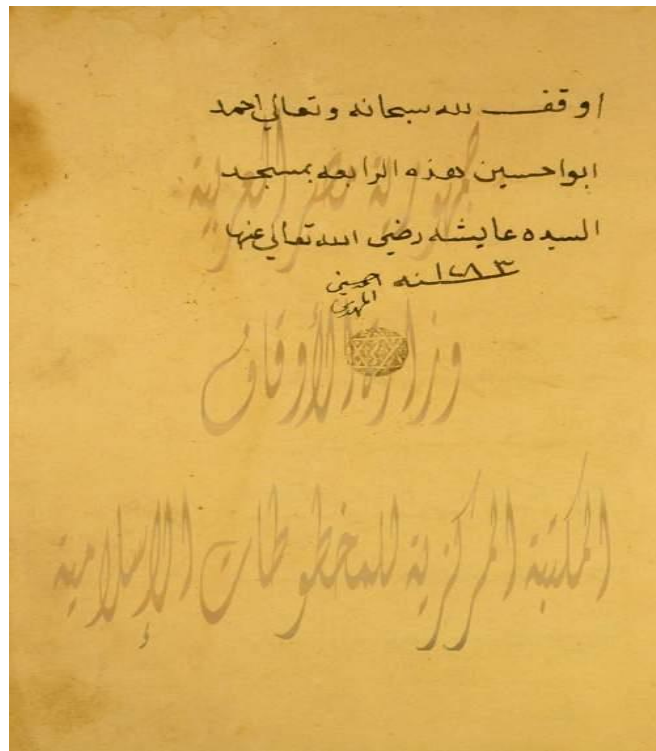 اوقف لله سبحانه وتعالي احمد
ابوا حسين هذه الرابعه بمسجد
السيده عايشه رضي الله تعالي عنها
سنه ١٢٨٣
جمهورية مصر العربية
وزارة الأوقاف
المكتبة المركزية للمخطوطات الإسلامية